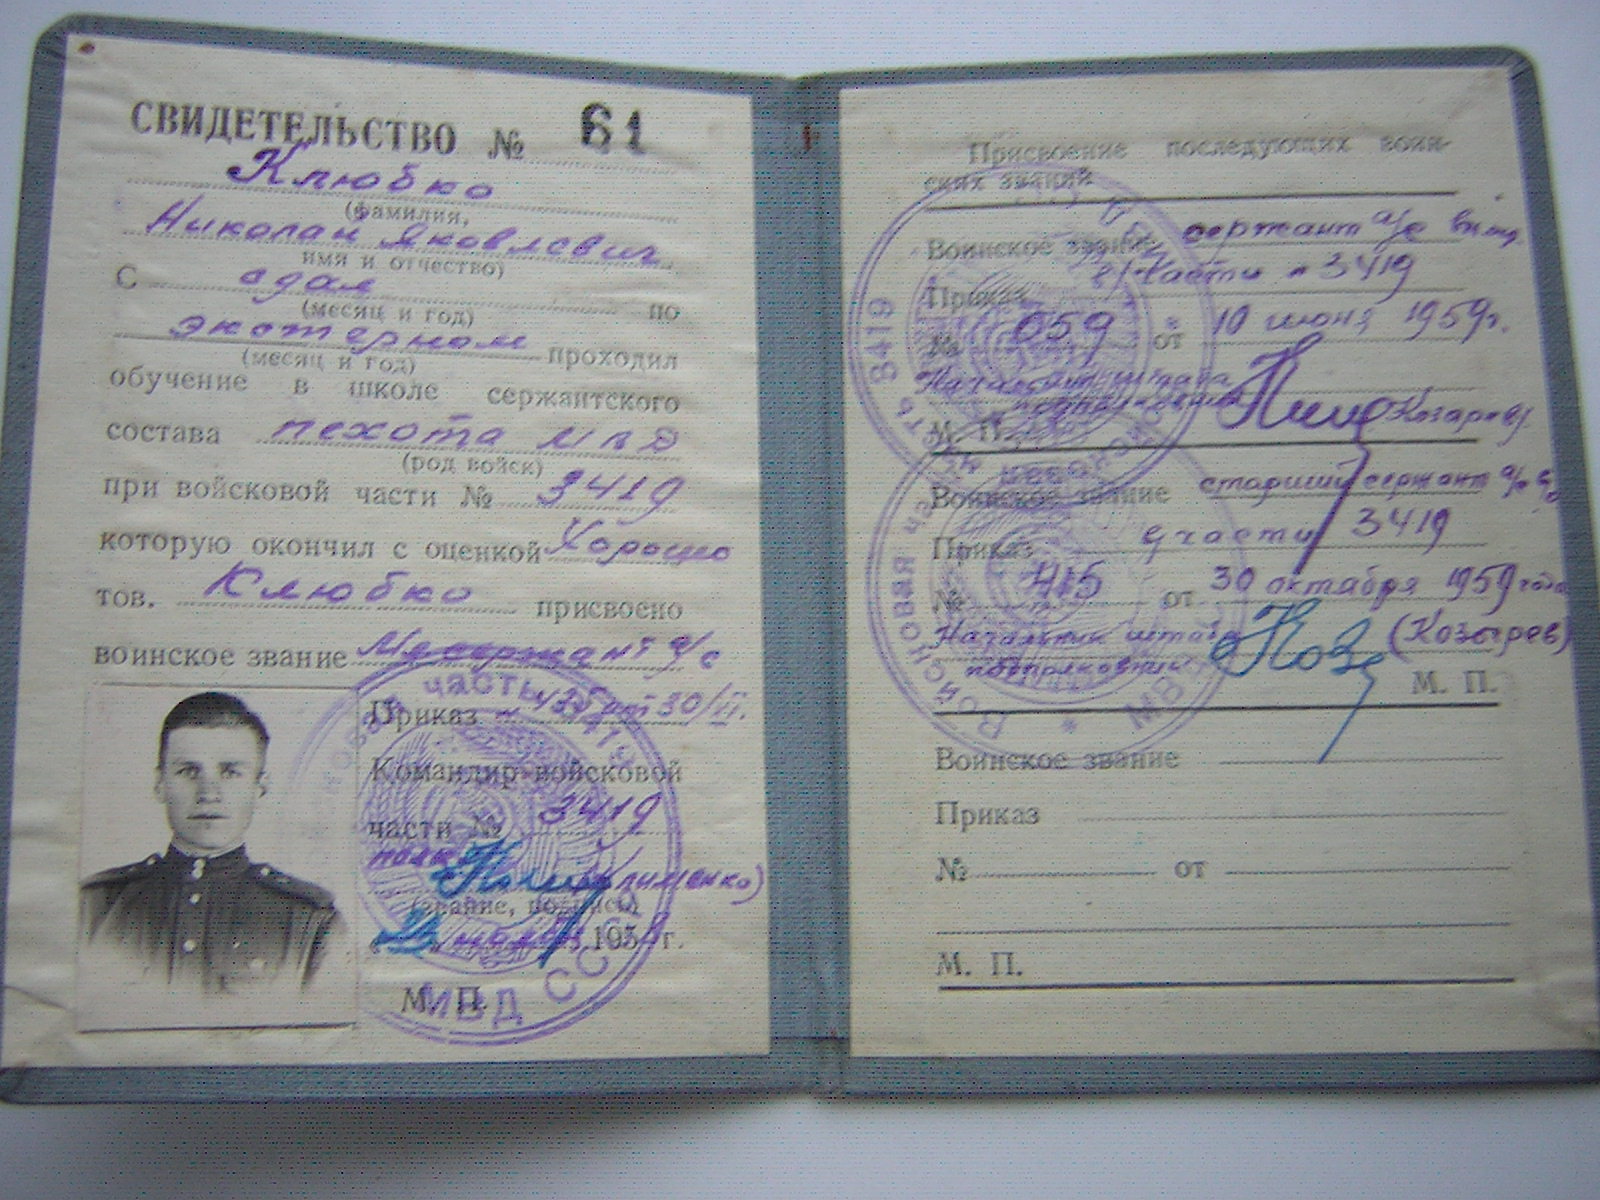 СВИДЕТЕЛЬСТВО № 61
Клюбко
(фамилия,
Николай Яковлевич
имя и отчество)
С сдал
(месяц и год) по
экстерном
(месяц и год) проходил
обучение в школе сержантского
состава пехота МВД
(род войск)
при войсковой части № 3419
которую окончил с оценкой Хорошо
тов. Клюбко присвоено
воинское звание Мл сержант а/с
Приказ
Командир войсковой
части № 3419
(звание, подпись)
г.
М. П.
МВД СССР
Присвоение последующих воин-
ских званий
Воинское звание сержант а/с
части № 3419
Приказ
№ 059 от 10 июня 1959г.
Начальник штаба
М. П.
Воинское звание старший сержант
части 3419
Приказ
№ 415 от 30 октября 1959 года
Начальник штаба
подполковник (Козырев)
М. П.
Войсковая часть 3419
МВД
Воинское звание
Приказ
№ от
М. П.